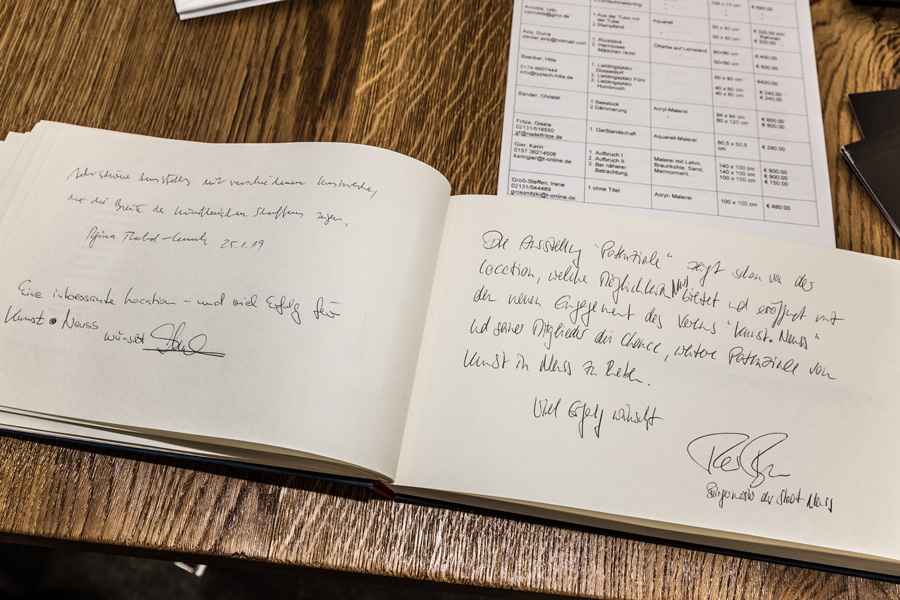 Sehr schöne Ausstellung mit verschiedenen
die Breite des künstlerischen Schaffens zeigen.
25.1.19
Eine interessante Location - und viel Erfolg für
Kunst • Neuss
wünscht
Die Ausstellung "Potenziale" zeigt schon von der
Location, welche Möglichkeiten bietet und eröffnet mit
dem neuen Engagement des Vereins "Kunst.Neuss"
und seiner Mitglieder die Chance, weitere Potenziale von
Kunst in Neuss zu heben.
Viel Erfolg wünscht
Bürgermeister der Stadt Neuss
Arnolds, Udo
1.Aus der Tube mit der Tube
2.Stampfend
Aquarell
Aziz, Guna
1. Rückblick
2. Harmloses Mädchen redet
Ölfarbe auf Leinwand
80×80 cm
€ 450.00
€ 500.00
Baecker, Hilla
0174-9907444
info@typisch-hilla.de
1. Lieblingsplatz Düsseldorf
2. Lieblingsplatz Föhr
3. Lieblingsplatz Hombroich
90 x 90 cm
40 x 60 cm
40 x 60 cm
€420.00
€ 240.00
€ 240.00
Bänder, Christel
1.Seestück
2.Dämmerung
Acryl-Malerei
94 x 94 cm
80 x 120 cm
€ 800.00
€ 800.00
Fritze, Gisela
02131/518550
gf@nadelfritze.de
1. Darßlandschaft
Aquarell-Malerei
50.5 x 50.5 cm
€ 280.00
Gier, Karin
0157 36214508
karingier@t-online.de
1. Aufbruch I
2. Aufbruch II
3. Bei näherer Betrachtung
Malerei mit Lehm, Braunkohle, Sand, Marmormehl.
140 x 100 cm
140 x 100 cm
100 x 100 cm
€ 900.00
€ 900.00
€ 750.00
Groß-Steffen, Irene
02131/544489
grossnitzki@t-online.de
1.ohne Titel
Acryl- Malerei
100 x 100 cm
€ 480.00